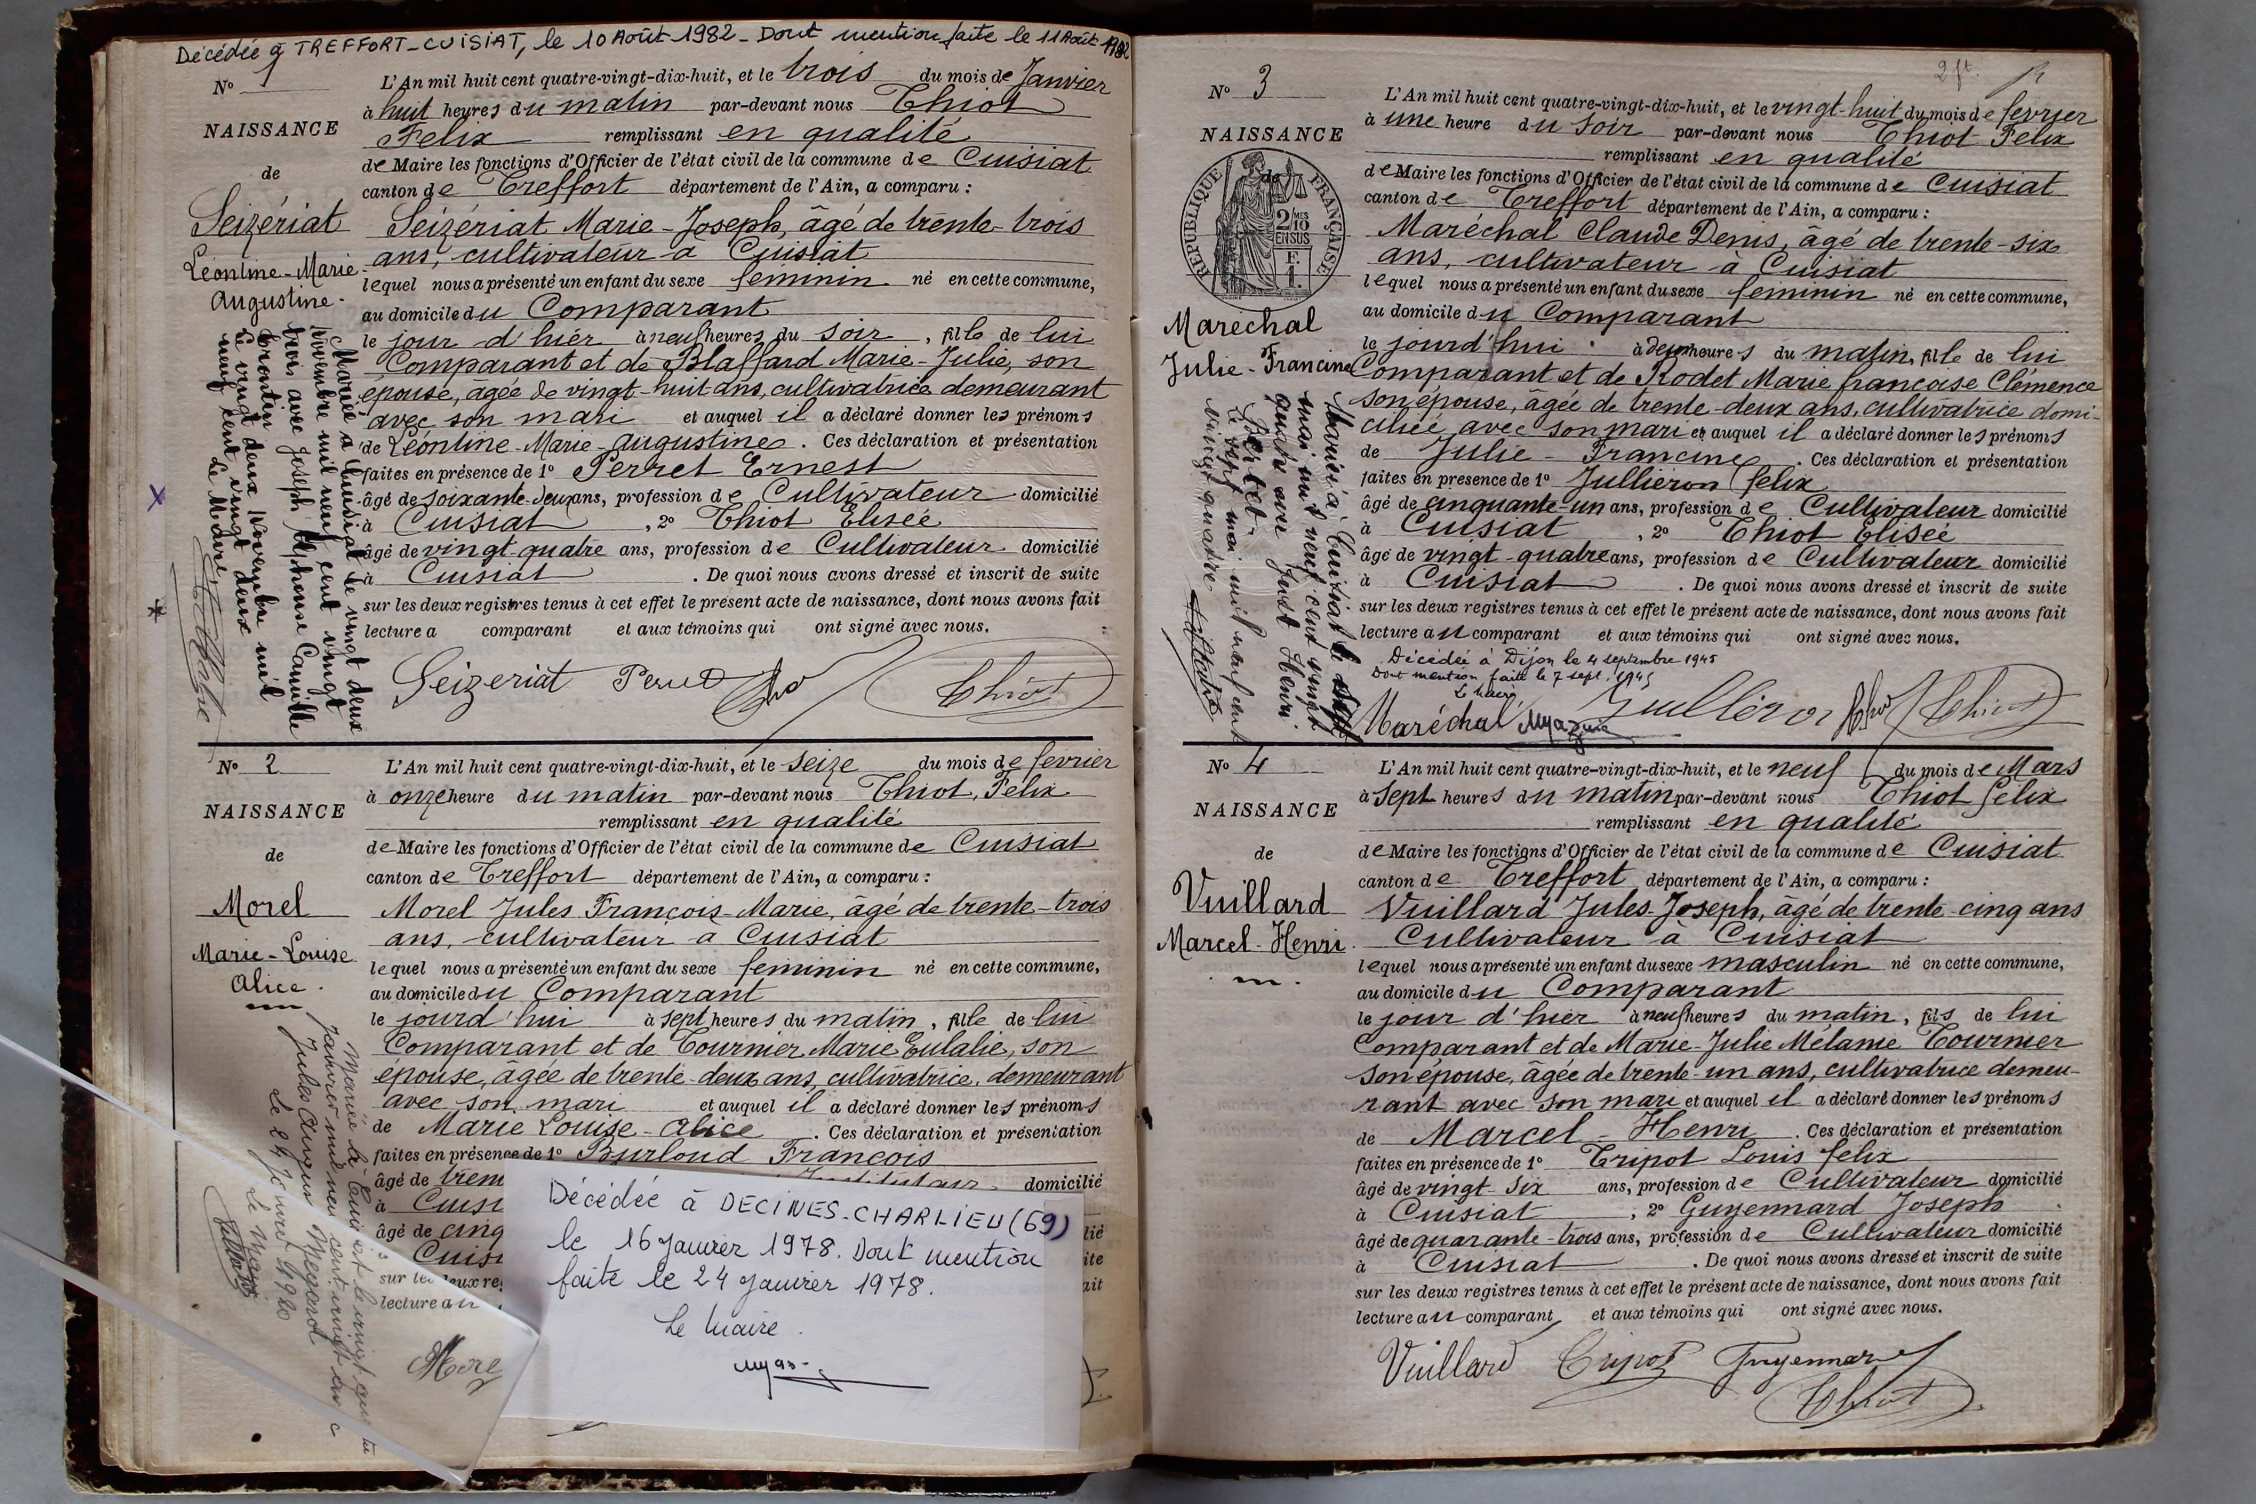 Décédée à TREFFORT-CUISIAT, le 10 Août 1982 - Dont mention faite le 11 Août 1982
N° 1
NAISSANCE
de
Seizériat
Léontine-Marie
Augustine.
L'An mil huit cent quatre-vingt-dix-huit, et le trois du mois de Janvier
à huit heures du matin par-devant nous Thiot
Felix remplissant en qualité
de Maire les fonctions d'Officier de l'état civil de la commune de Cuisiat
canton de Treffort département de l'Ain, a comparu :
Seizériat Marie-Joseph, âgé de trente-trois
ans, cultivateur à Cuisiat
lequel nous a présenté un enfant du sexe feminin né en cette commune,
au domicile du Comparant
le jour d'hier à neuf heures du soir, fille de lui
Comparant et de Blaffard Marie-Julie, son
epouse, âgée de vingt-huit ans, cultivatrice demeurant
avec son mari et auquel il a déclaré donner les prénoms
de Léontine-Marie-Augustine. Ces déclaration et présentation
faites en présence de 1° Perret Ernest
âgé de soixante-deux ans, profession de Cultivateur domicilié
à Cuisiat, 2° Thiot Elisée
âgé de vingt-quatre ans, profession de Cultivateur domicilié
à Cuisiat. De quoi nous avons dressé et inscrit de suite
sur les deux registres tenus à cet effet le présent acte de naissance, dont nous avons fait
lecture a comparant et aux témoins qui ont signé avec nous.
Mariée à Cuisiat le vingt deux
Novembre mil neuf cent vingt
trois avec Joseph Alphonse Camille
Le vingt deux Novembre mil
neuf cent vingt deux
Le Maire,
Seizeriat Perret Thiot
N° 2
NAISSANCE
de
Morel
Marie-Louise
Alice.
L'An mil huit cent quatre-vingt-dix-huit, et le seize du mois de fevrier
à onze heure du matin par-devant nous Thiot, Felix
remplissant en qualité
de Maire les fonctions d'Officier de l'état civil de la commune de Cuisiat
canton de Treffort département de l'Ain, a comparu :
Morel Jules François-Marie, âgé de trente-trois
ans, cultivateur à Cuisiat
lequel nous a présenté un enfant du sexe feminin né en cette commune,
au domicile du Comparant
le jourd'hui à sept heures du matin, fille de lui
Comparant et de Tournier Marie Eulalie, son
épouse, âgée de trente-deux ans, cultivatrice, demeurant
avec son mari et auquel il a déclaré donner les prénoms
de Marie Louise-Alice. Ces déclaration et présentation
faites en présence de 1° Burloud François
âgé de tren Instituteur domicilié
à Cuisi
âgé de cinq lié
Cuisi ite
sur les deux re ait
lecture au
Mariée à Cuisiat le vingt quatre
Janvier mil neuf cent vingt avec
Jules
Le 24 Janvier 1920
Le Maire
More
Décédée à DECINES-CHARLIEU (69)
le 16 Janvier 1978. Dont mention
faite le 24 Janvier 1978.
Le Maire.
2 ft.
N° 3
NAISSANCE
de
RÉPUBLIQUE FRANÇAISE
2/10 MES
EN SUS
F.
1.
Maréchal
Julie-Francine
L'An mil huit cent quatre-vingt-dix-huit, et le vingt-huit du mois de fevrier
à une heure du soir par-devant nous Thiot Felix
remplissant en qualité
de Maire les fonctions d'Officier de l'état civil de la commune de Cuisiat
canton de Treffort département de l'Ain, a comparu :
Maréchal Claude Denis, âgé de trente-six
ans, cultivateur à Cuisiat
lequel nous a présenté un enfant du sexe feminin né en cette commune,
au domicile du Comparant
le jourd'hui à deux heures du matin, fille de lui
Comparant et de Rodet Marie françoise Clémence
son épouse, âgée de trente-deux ans, cultivatrice domi-
ciliée avec son mari et auquel il a déclaré donner les prénoms
de Julie-Francine. Ces déclaration et présentation
faites en présence de 1° Jullièron felix
âgé de cinquante-un ans, profession de Cultivateur domicilié
à Cuisiat, 2° Thiot Elisée
âgé de vingt-quatre ans, profession de Cultivateur domicilié
à Cuisiat. De quoi nous avons dressé et inscrit de suite
sur les deux registres tenus à cet effet le présent acte de naissance, dont nous avons fait
lecture au comparant et aux témoins qui ont signé avec nous.
Mariée à Cuisiat le sept
mai mil neuf cent vingt
quatre avec Just Henri
Le sept mai mil neuf cent
vingt quatre
Décédée à Dijon le 4 septembre 1945
Dont mention faite le 7 sept. 1945
Le Maire,
Maréchal Jullièron Thiot
N° 4
NAISSANCE
de
Vuillard
Marcel-Henri.
L'An mil huit cent quatre-vingt-dix-huit, et le neuf du mois de Mars
à sept heures du matin par-devant nous Thiot felix
remplissant en qualité
de Maire les fonctions d'Officier de l'état civil de la commune de Cuisiat
canton de Treffort département de l'Ain, a comparu :
Vuillard Jules-Joseph, âgé de trente-cinq ans
Cultivateur à Cuisiat
lequel nous a présenté un enfant du sexe masculin né en cette commune,
au domicile du Comparant
le jour d'hier à neuf heures du matin, fils de lui
Comparant et de Marie-Julie Mélanie Tournier
son épouse, âgée de trente-un ans, cultivatrice demeu-
rant avec son mari et auquel il a déclaré donner les prénoms
de Marcel-Henri. Ces déclaration et présentation
faites en présence de 1° Tripot Louis felix
âgé de vingt-six ans, profession de Cultivateur domicilié
à Cuisiat, 2° Guyennard Joseph
âgé de quarante-trois ans, profession de Cultivateur domicilié
à Cuisiat. De quoi nous avons dressé et inscrit de suite
sur les deux registres tenus à cet effet le présent acte de naissance, dont nous avons fait
lecture au comparant et aux témoins qui ont signé avec nous.
Vuillard Tripot Guyennard
Thiot